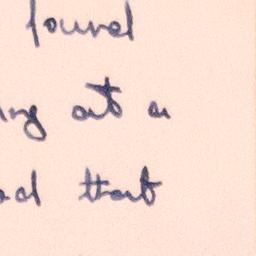 found
ing out a
ad that